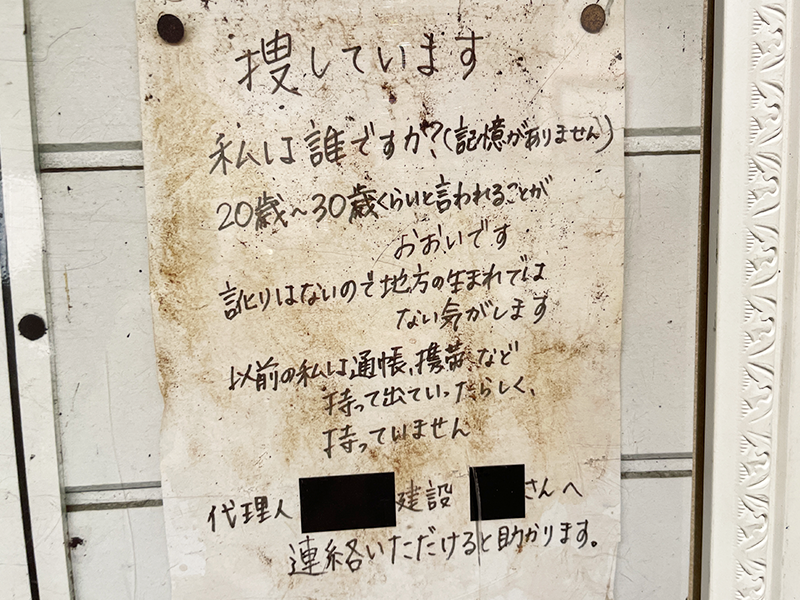 捜しています
私は誰ですか?(記憶がありません)
20歳〜30歳くらいと言われることが
おおいです
訛りはないので地方の生まれでは
ない気がします
以前の私は通帳、携帯など
持って出ていったらしく、
持っていません
代理人 建設 さんへ
連絡いただけると助かります。